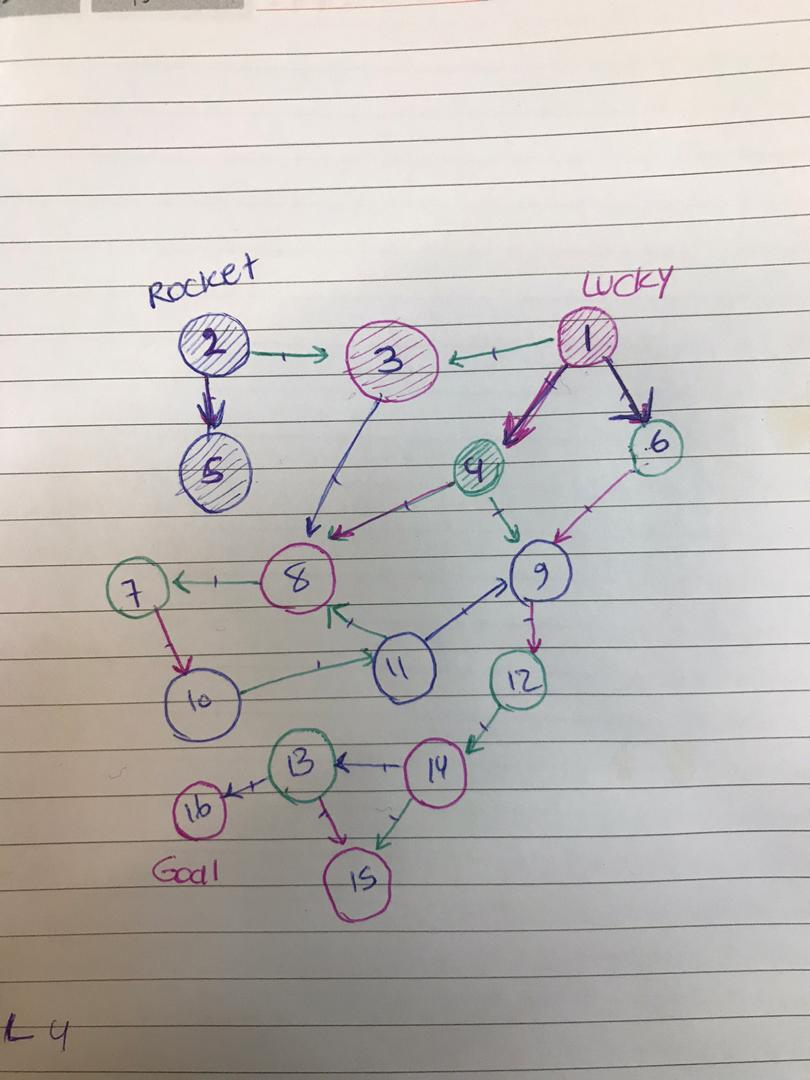 Rocket
Lucky
2
3
1
5
4
6
7
8
9
10
11
12
13
14
16
Goal
15
L 4